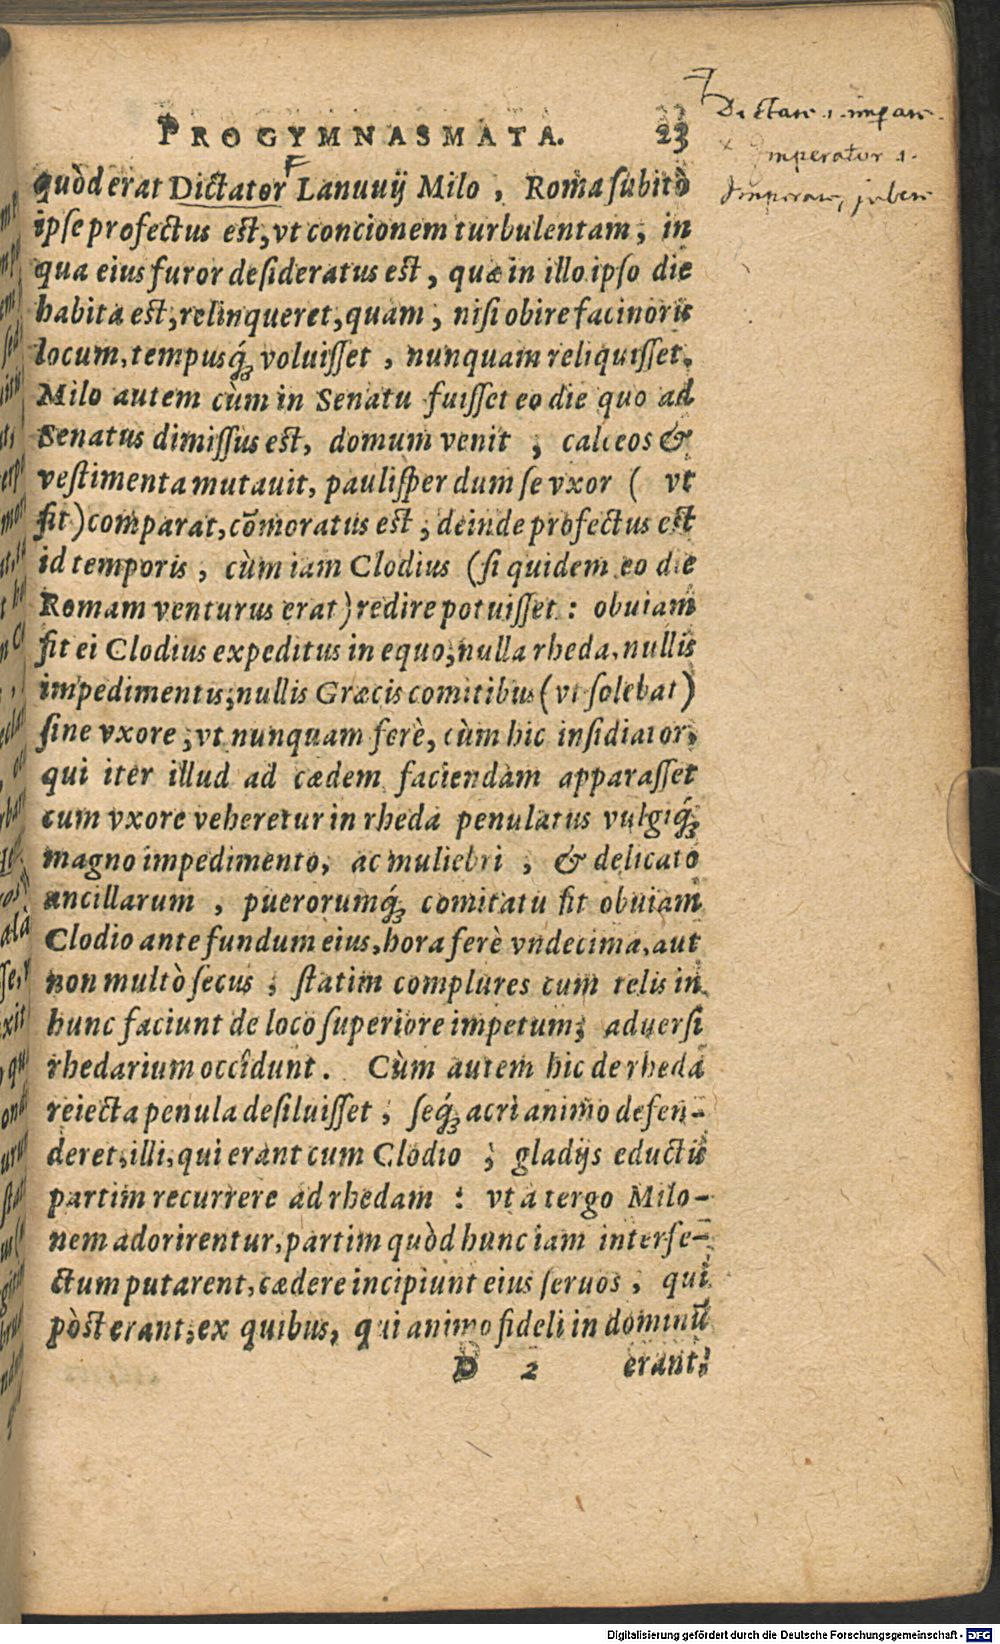 PROGYMNASMATA. 23
quòd erat Dictator Lanuuij Milo, Roma subitò
ipse profectus est, vt concionem turbulentam, in
qua eius furor desideratus est, quæ in illo ipso die
habita est, relinqueret, quam, nisi obire facinoris
locum, tempusq́; voluisset, nunquam reliquisset.
Milo autem cùm in Senatu fuisset eo die quo ad
Senatus dimissus est, domum venit, calceos &
vestimenta mutauit, paulisper dum se vxor ( vt
fit) comparat, cōmoratus est, deinde profectus est
id temporis, cùm iam Clodius (si quidem eo die
Romam venturus erat) redire potuisset: obuiam
fit ei Clodius expeditus in equo, nulla rheda, nullis
impedimentis, nullis Græcis comitibus (vt solebat)
sine vxore, vt nunquam ferè, cùm hic insidiator,
qui iter illud ad cædem faciendam apparasset
cum vxore veheretur in rheda penulatus vulgiq́;
magno impedimento, ac muliebri, & delicato
ancillarum, puerorumq́; comitatu fit obuiam
Clodio ante fundum eius, hora ferè vndecima, aut
non multò secus; statim complures cum telis in
hunc faciunt de loco superiore impetum; aduersi
rhedarium occidunt. Cùm autem hic de rheda
reiecta penula desiluisset, seq́; acri animo defen-
deret, illi, qui erant cum Clodio, gladijs eductis
partim recurrere ad rhedam: vt a tergo Milo-
nem adorirentur, partim quòd hunc iam interfe-
ctum putarent, cædere incipiunt eius seruos, qui
pòst erant; ex quibus, qui animo fideli in dominū
D 2 erant,
Dictare .i. impare.
Imperator .i.
Imperare, jubere
Digitalisierung gefördert durch die Deutsche Forschungsgemeinschaft - DFG